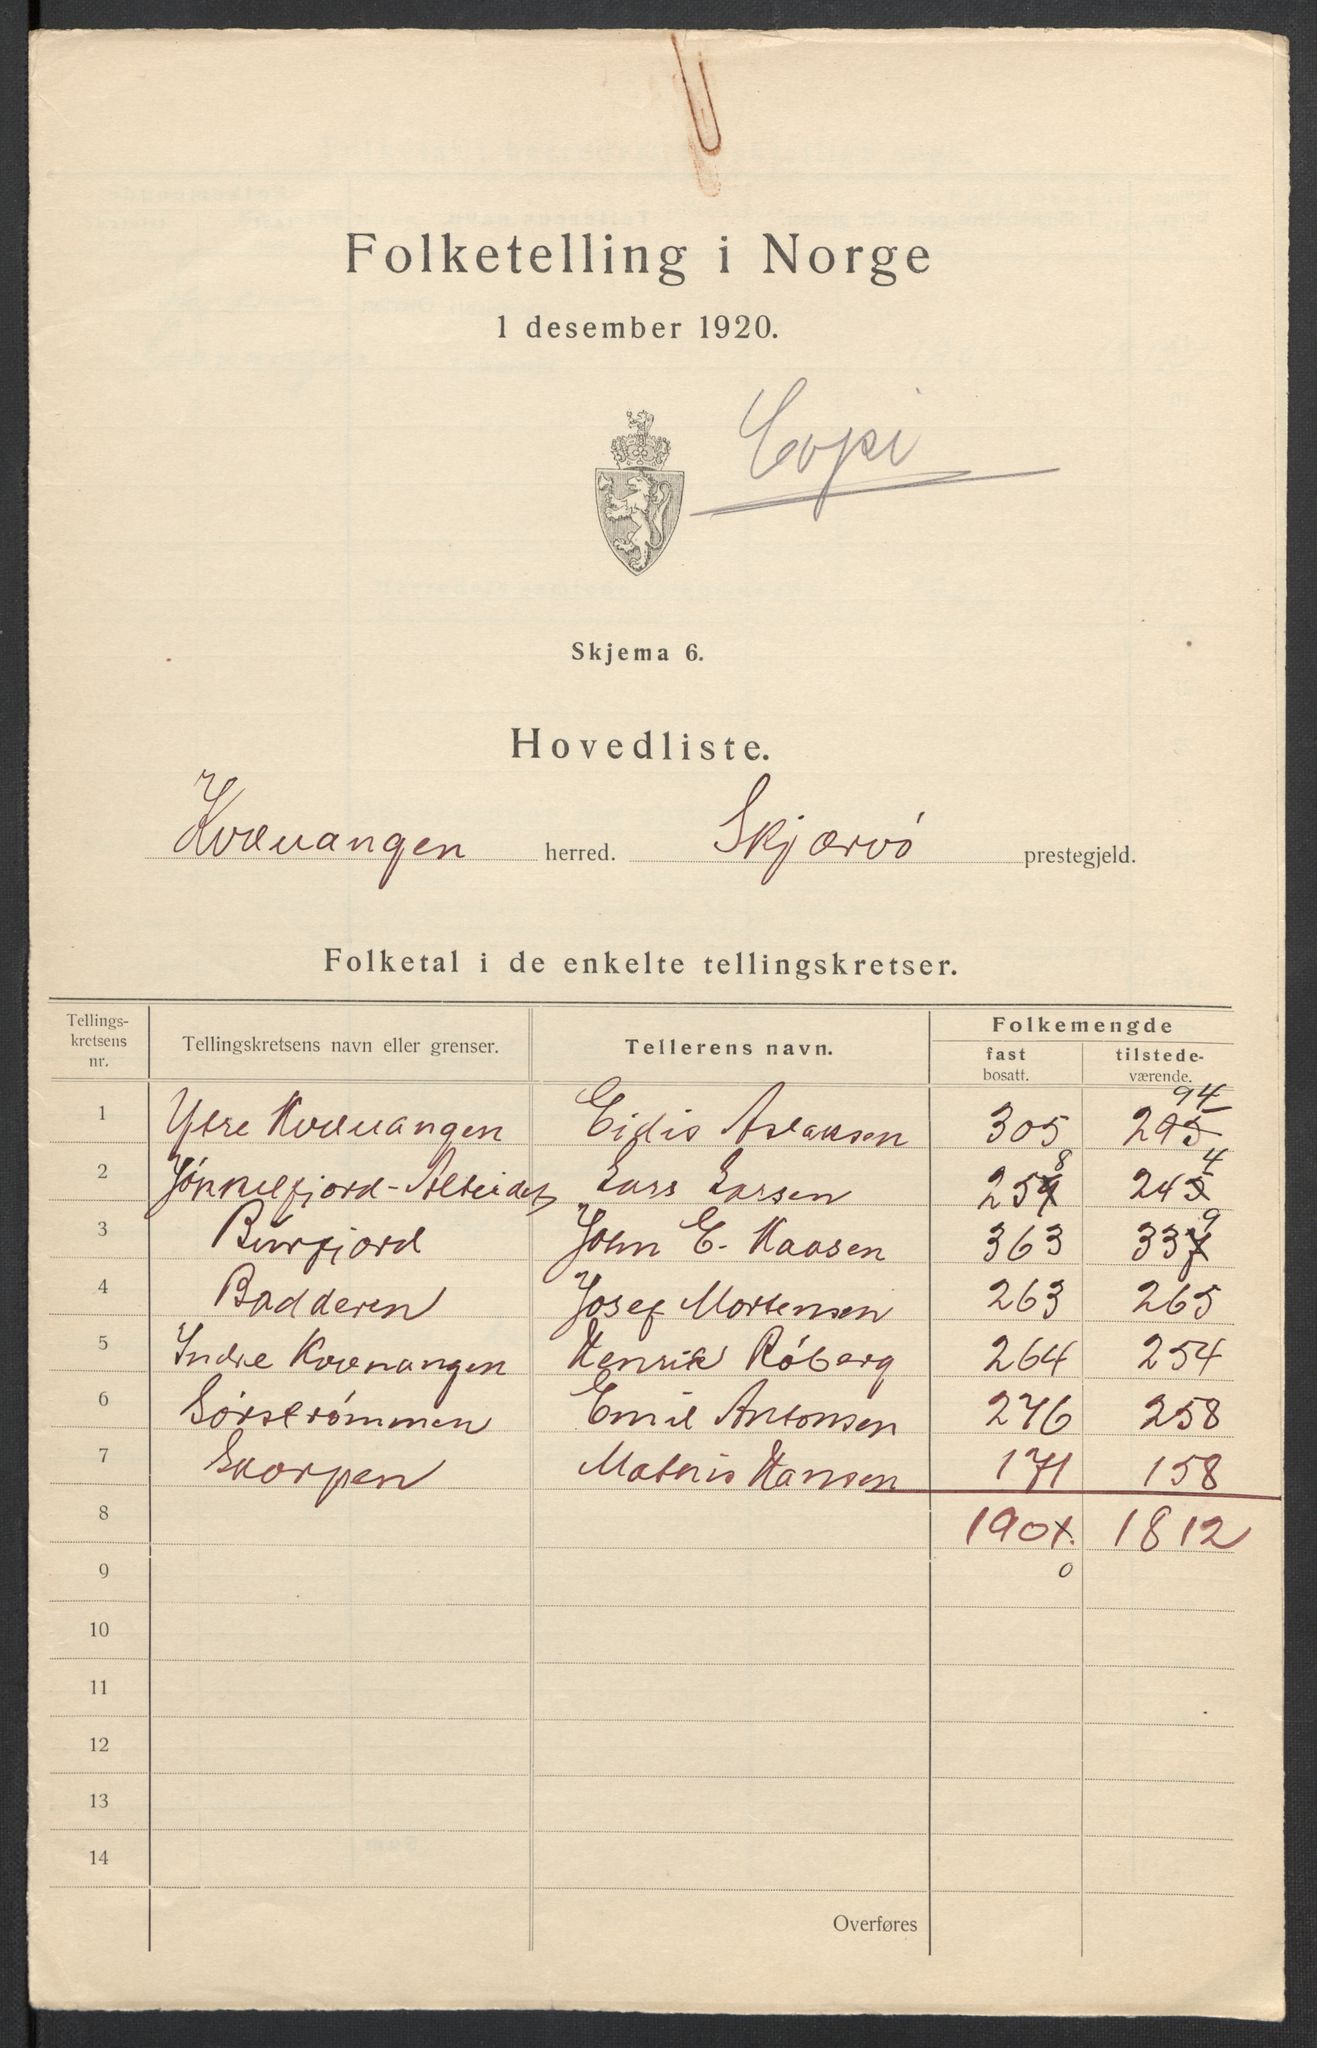 Folketelling i Norge
1 desember 1920.
Copi
Skjema 6.
Hovedliste.
Kvænangen herred. Skjærvö prestegjeld.
Folketal i de enkelte tellingskretser.
Tellings-kretsens nr. Tellingskretsens navn eller grenser. Tellerens navn. Folkemengde fast bosatt. tilstede-værende.
1 Ytre Kvænangen Eidis Aslaksen 305 295 94
2 Jøkkelfjord-Alteidet Lars Larsen 259 8 245 4
3 Burfjord John E. Kaasen 363 337 9
4 Badderen Josef Mortensen 263 265
5 Indre Kvænangen Henrik Röberg 264 254
6 Sörströmmen Emil Antonsen 276 258
7 Skorpen Mathis Hansen 171 158
8 1901. 1812
9 0
10
11
12
13
14
Overføres